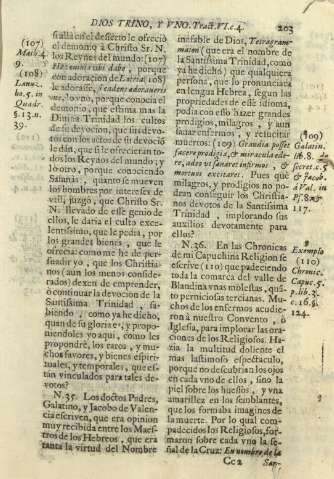 DIOS TRINO, Y VNO. Tract. VI. c. 4.
203
(107)
Math. 4
9.
(108)
Lanuz.
ho. 5. in
Quadr.
§. 13. n.
39.
si allà en el desierto le ofreciò
el demonio à Christo Sr. N.
los Reynos del mundo: (107)
Hæc omnia tibi dabo, porque
con adoracion de Latria, (108)
le adorasse, si cadens adoraveris
me, lo vno, porque conocia el
demonio, que estima mas la
Divina Trinidad los cultos
de su devocion, que sus devo-
con los actos de su devocio
dàn, que si le ofrecieran to-
dos los Reynos del mundo; y
lo otro, porque conociendo
Satanàs, quanto se mueven
los hombres por interès ci-
vil, juzgò, que Christo Sr.
N. llevado de este genio de
ellos, le daria el culto devo-
tissimo, que le pedia, por
los grandes bienes, que le
ofrecia: como me he de per-
suadir yo, que los Christia-
nos (aun los menos conside-
rados) dexen de emprender,
ò continuar la devocion de la
Santissima Trinidad, sa-
biendo, como ya he dicho,
quan de su gloria es, y propo-
niendoles yo aqui, como les
propondrè, los raros, y mu-
chos favores, y bienes espiri-
tuales, y temporales, que es-
tàn vinculados para tales de-
votos?
N. 35. Los doctos Padres,
Galatino, y Jacobo de Valen-
cia escriven, que era opinion
muy recibida entre los Maes-
tros de los Hebreos, que era
tanta la virtud del Nombre
inefable de Dios, Tetragram-
maton (que era el nombre de
la Santissima Trinidad, como
ya he dicho) que qualquiera
persona, que lo pronunciara
en lengua Hebrea, segun las
propriedades de esse idioma,
podia con esso hazer grandes
prodigios, milagros, y aun
sanar enfermos, y resucitar
muertos: (109) Grandia posset
facere prodigia, & mirabilia ede-
re, adeo vt sanaret infirmos, &
mortuos excitaret. Pues què
milagros, y prodigios no po-
dran conseguir los Christia-
nos devotos de la Santissima
Trinidad, implorando sus
auxilios devotamente para
ellos?
N. 36. En las Chronicas
de mi Capuchina Religion se
escrive (110) que padeciendo
toda la comarca del valle de
Blandina vnas molestas, quà-
to perniciosas tercianas. Mu-
chos de los enfermos acudie-
ron à nuestro Convento, ò
Iglesia, para implorar las ora-
ciones de los Religiosos. Ha-
zia la multitud doliente el
mas lastimoso espectaculo,
porque no descubrian los ojos
en cada vno de ellos, sino la
piel sobre los huessos, y vna
amarillez en los semblantes,
que los formaba imagines de
la muerte. Por lo qual com-
padecidos los Religiosos, for-
maron sobre cada vno la se-
ñal de la Cruz: En nombre de la
Cc 2 San-
(109)
Galatin.
lib. 8. de
secret. c. 5
& Jacob.
à Val. in
Ps. 8. &
117.
Exemplo
(110)
Chronic.
Capuc. 5.
p. lib. 3.
c. 16. §.
124.